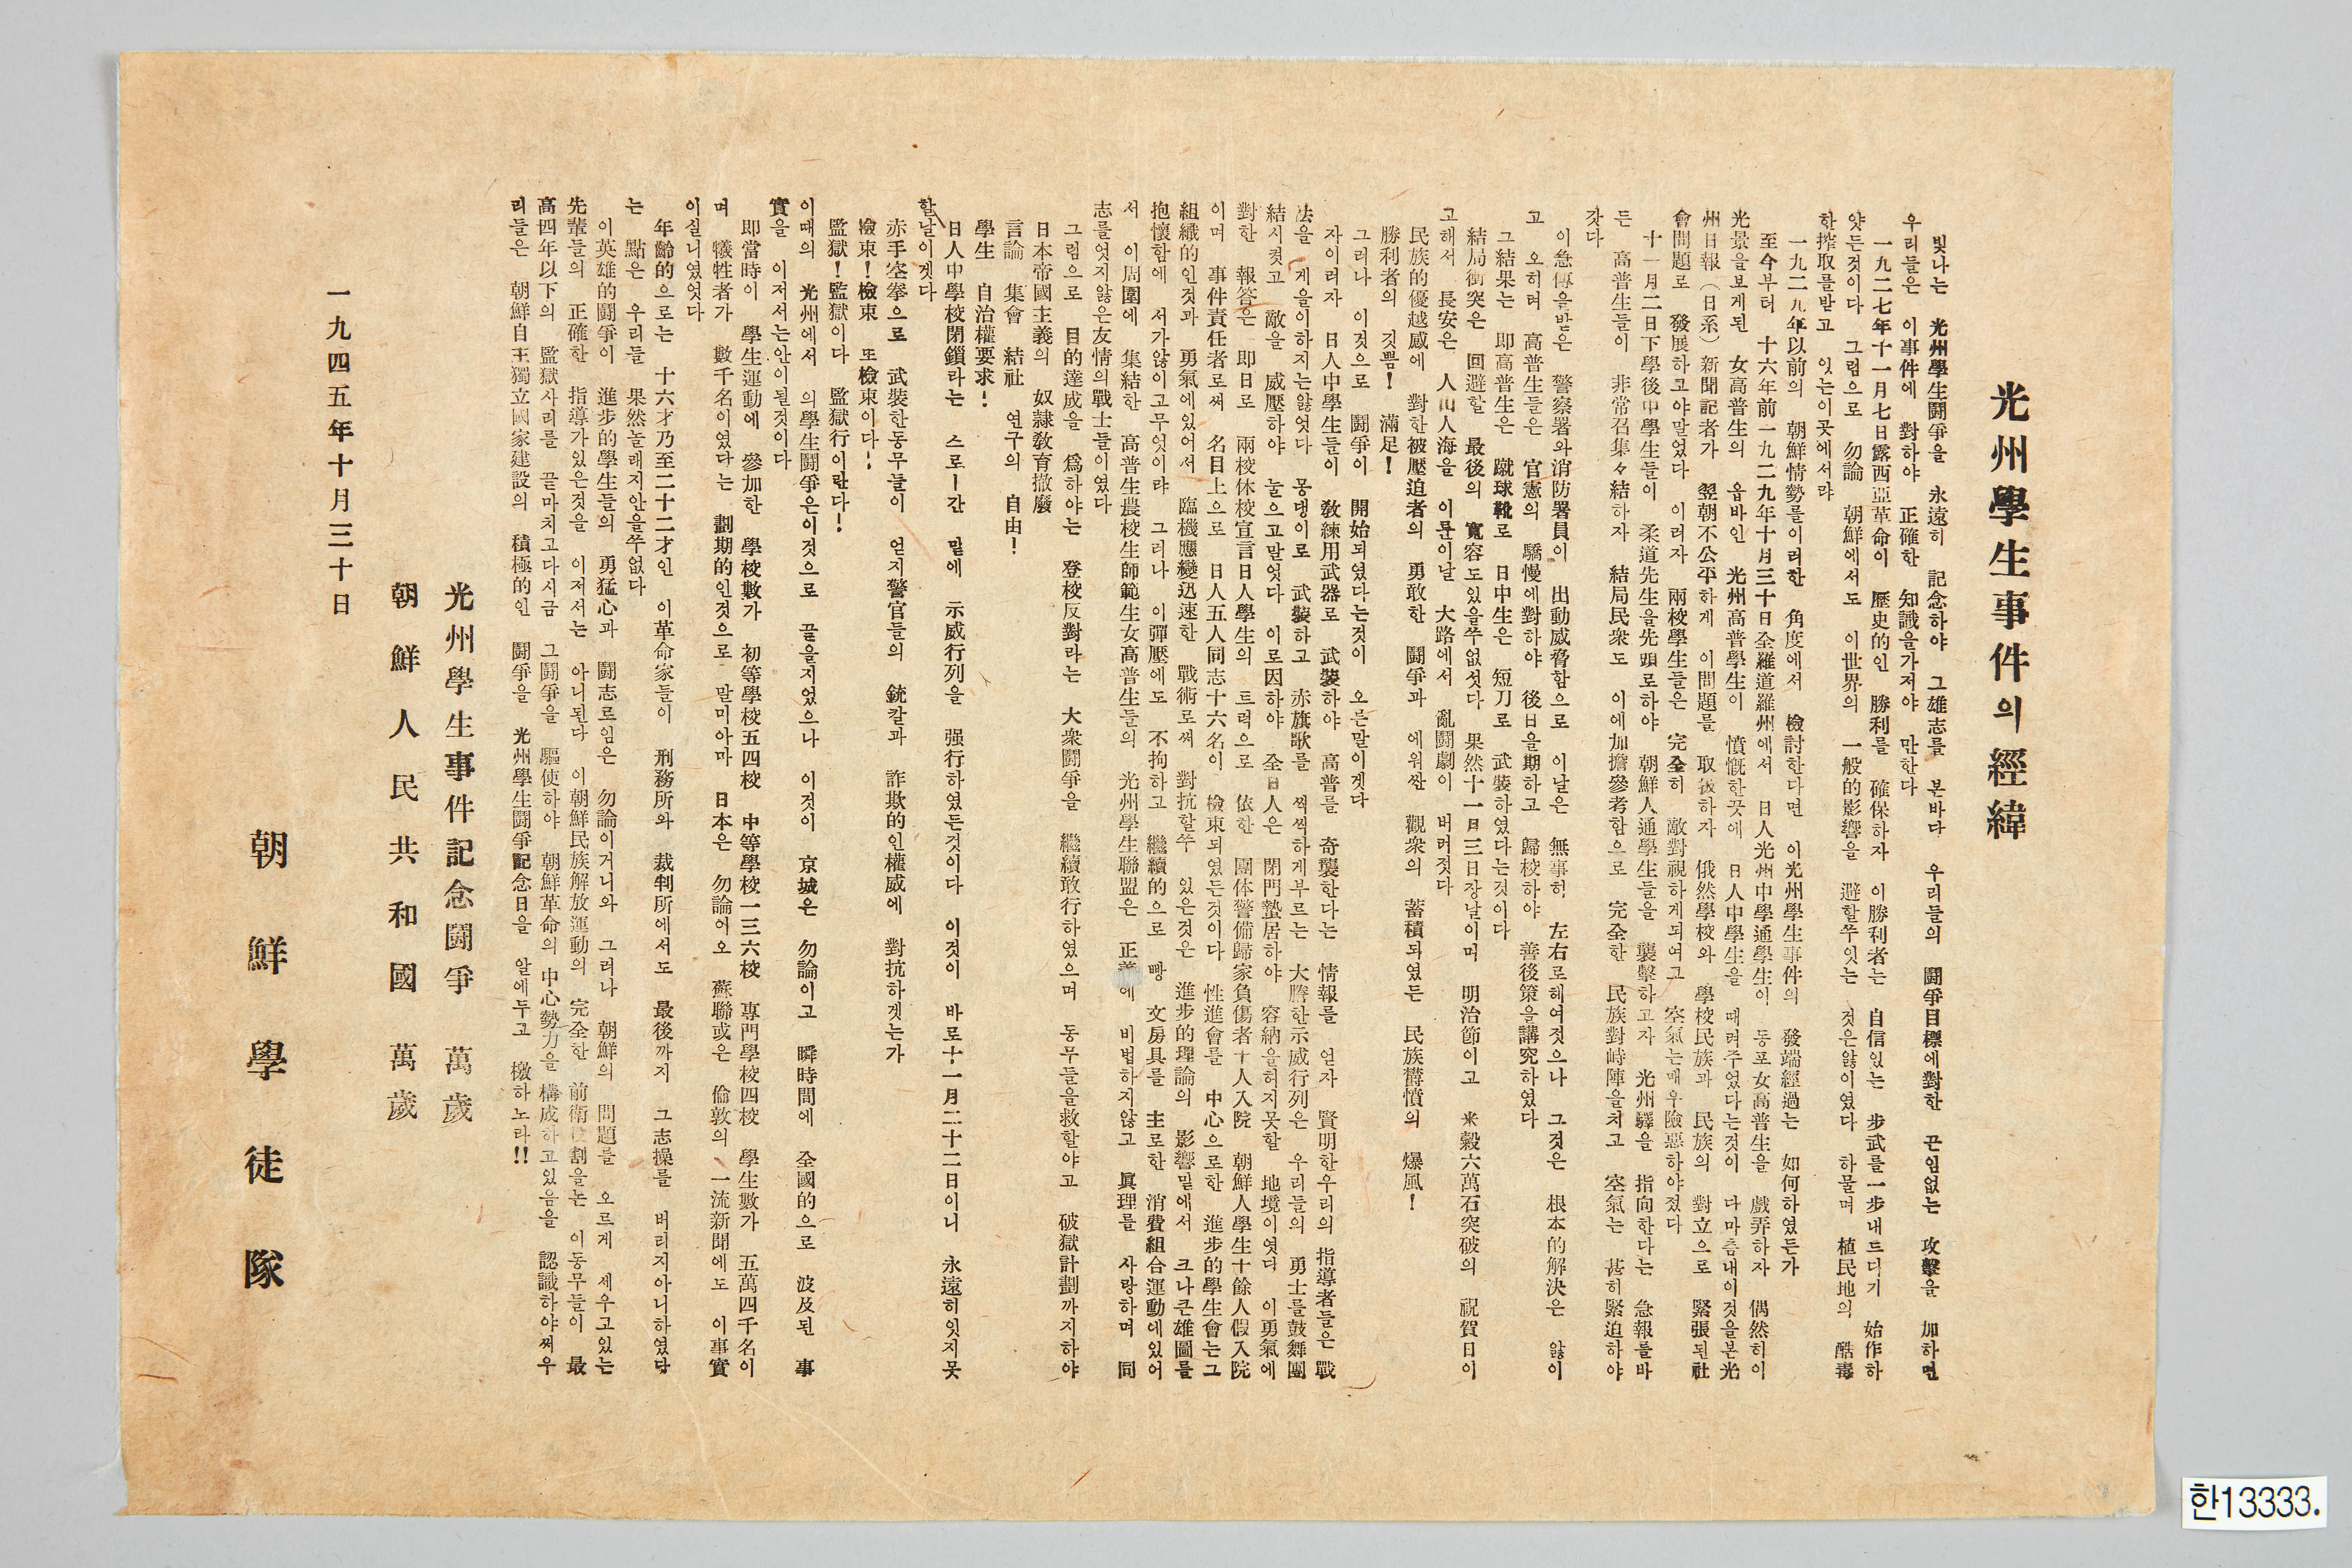 光州學生事件의經緯
빛나는 光州學生鬪爭을 永遠히 記念하야 그雄志를 본바다 우리들의 鬪爭目標에對한 끈임없는 攻擊을 加하면
우리들은 이事件에 對하야 正確한 知識을가저야 만한다
一九二七年十一月七日露西亞革命이 歷史的인 勝利를 確保하자 이勝利者는 自信있는 步武를一步내드디기 始作하
얏든것이다 그럼으로 勿論 朝鮮에서도 이世界의 一般的影響을 避할쭈잇는 것은않이였다 하물며 植民地의 酷毒
한搾取를받고 잇는이곳에서랴
一九二九年以前의 朝鮮情勢를이러한 角度에서 檢討한다면 이光州學生事件의 發端經過는 如何하였든가
至今부터 十六年前一九二九年十月三十日全羅道羅州에서 日人光州中學通學生이 동포女高普生을 戲弄하자 偶然히이
光景을보게된 女高普生의 옵바인 光州高普學生이 憤慨한끗에 日人中學生을 때려주었다는것이 다마츰내이것을본光
州日報(日系)新聞記者가 翌朝不公平하게 이問題를 取扱하자 俄然學校와 學校民族과 民族의 對立으로 緊張된社
會問題로 發展하고야말었다 이러자 兩校學生들은 完全히 敵對視하게되여고 空氣는매우險惡하야졌다
十一月二日下學後中學生들이 柔道先生을先頭로하야 朝鮮人通學生들을 襲擊하고자 光州驛을 指向한다는 急報를바
든 高普生들이 非常召集々結하자 結局民衆도 이에加擔參考함으로 完全한 民族對峙陣을치고 空氣는 甚히緊迫하야
갓다
이急傳을받은 警察署와消防署員이 出動威脅함으로 이날은 無事히 左右로헤여젓으나 그것은 根本的解決은 않이
고 오히려 高普生들은 官憲의 驕慢에對하야 後日을期하고 歸校하야 善後策을講究하였다
그結果는 即高普生은 蹴球靴로 日中生은 短刀로 武裝하였다는것이다
結局衝突은 回避할 最後의 寬容도있을쭈없섯다 果然十一日三日장날이며 明治節이고 米穀六萬石突破의 祝賀日이
고해서 長安은 人山人海을 이룬이날 大路에서 亂鬪劇이 버러젓다
民族的優越感에 對한被壓迫者의 勇敢한 鬪爭과 에워싼 觀衆의 蓄積되였든 民族欝憤의 爆風!
勝利者의 깃쁨! 滿足!
그러나 이것으로 鬪爭이 開始되였다는것이 오른말이겟다
자이러자 日人中學生들이 敎練用武器로 武裝하야 高普를 奇襲한다는 情報를 얻자 賢明한우리의 指導者들은 戰
法을 게을이하지는않엇다 몽댕이로 武裝하고 赤旗歌를 씩씩하게부르는 大膽한示威行列은 우리들의 勇士를鼓舞團
結시켯고 敵을 威壓하야 눌으고말엇다 이로因하야 全日人은 閉門蟄居하야 容納을허지못할 地境이엿다 이勇氣에
對한 報答은 即日로 兩校休校宣言日人學生의 트럭으로 依한 團体警備歸家負傷者十人入院 朝鮮人學生十餘人假入院
이며 事件責任者로써 名目上으로 日人五人同志十六名이 檢束되였든것이다 性進會를 中心으로한 進步的學生會는그
組織的인것과 勇氣에있어서 臨機應變迅速한 戰術로써 對抗할쭈 있은것은 進步的理論의 影響밑에서 크나큰雄圖를
抱懷함에 서가않이고무엇이랴 그러나 이彈壓에도 不拘하고 繼續的으로 빵 文房具를 主로한 消費組合運動에있어
서 이周圍에 集結한 高普生農校生師範生女高普生들의 光州學生聯盟은 正義에 비법하지않고 眞理를 사랑하며 同
志를엇지않은友情의戰士들이였다
그럼으로 目的達成을 爲하야는 登校反對라는 大衆鬪爭을 繼續敢行하였으며 동무들을救할야고 破獄計劃까지하야
日本帝國主義의 奴隷敎育撤廢
言論 集會 結社 연구의 自由!
學生 自治權要求!
日人中學校閉鎖라는 스로ー간 밑에 示威行列을 强行하였든것이다 이것이 바로十一月二十二日이니 永遠히잇지못
할날이겟다
赤手空拳으로 武裝한동무들이 얻지警官들의 銃칼과 詐欺的인權威에 對抗하겟는가
檢束!檢束 또檢束이다!
監獄!監獄이다 監獄行이란다!
이때의 光州에서 의學生鬪爭은이것으로 끝을지었으나 이것이 京城은 勿論이고 瞬時間에 全國的으로 波及된 事
實을 이저서는안이될것이다
即當時이 學生運動에 參加한 學校數가 初等學校五四校 中等學校一三六校 專門學校四校 學生數가 五萬四千名이
며 犧牲者가 數千名이였다는 劃期的인것으로 말미아마 日本은 勿論어오 蘇聯或은 倫敦의 一流新聞에도 이事實
이실니였엇다
年齡的으로는 十六才乃至二十二才인 이革命家들이 刑務所와 裁判所에서도 最後까지 그志操를 버리지아니하였다
는 點은 우리들 果然놀래지안을쭈없다
이英雄的鬪爭이 進步的學生들의 勇猛心과 鬪志로임은 勿論이거니와 그러나 朝鮮의 問題를 오르게 세우고있는
先輩들의 正確한 指導가있은것을 이저서는 아니된다 이朝鮮民族解放運動의 完全한 前衛役割을논 이동무들이 最
高四年以下의 監獄사리를 끝마치고다시금 그鬪爭을 驅使하야 朝鮮革命의中心勢力을 構成하고있음을 認識하야써우
리들은 朝鮮自主獨立國家建設의 積極的인 鬪爭을 光州學生鬪爭記念日을 앞에두고 檄하노라!!
光州學生事件記念鬪爭 萬歲
朝鮮人民共和國 萬歲
一九四五年十月三十日
朝鮮學徒隊
한13333.